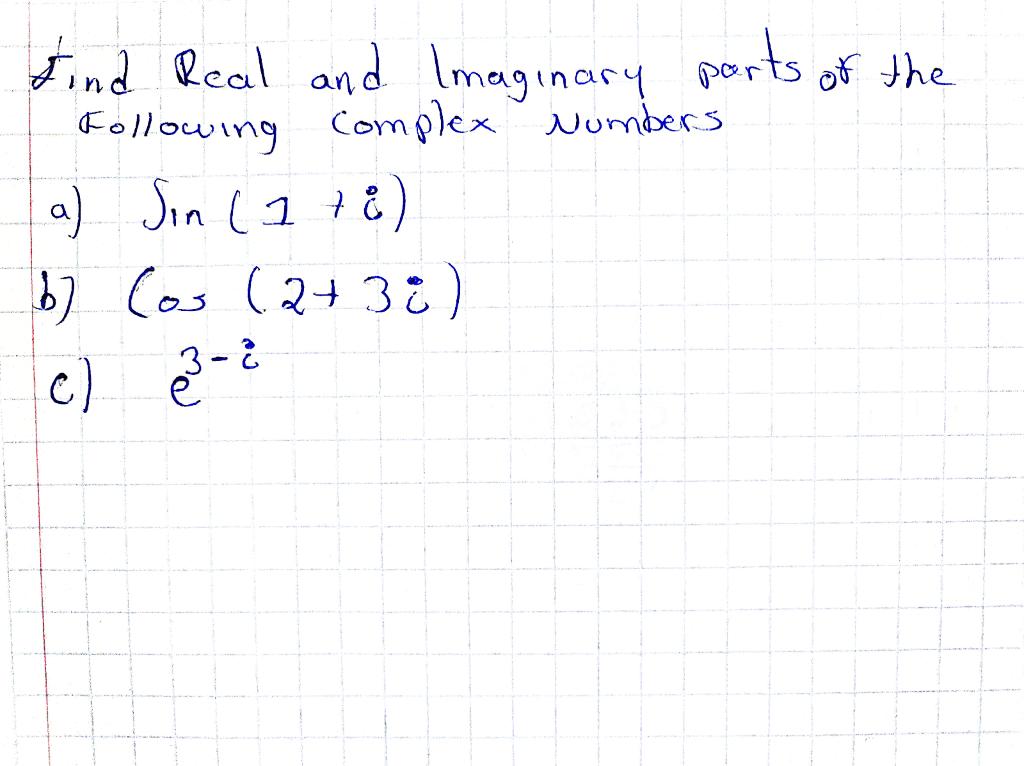 Find Real and Imaginary parts of the
Following Complex Numbers
a) Sin (1 + i)
b) Cos (2+ 3i)
c) e^{3-i}